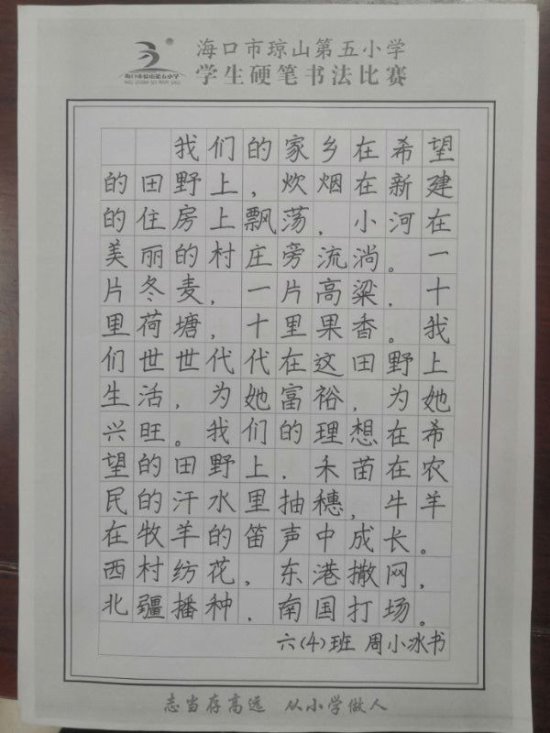 海口市琼山第五小学
学生硬笔书法比赛
海口市琼山第五小学
我们的家乡在希望
的田野上，炊烟在新建
的住房上飘荡，小河在
美丽的村庄旁流淌。一
片冬麦，一片高粱，十
里荷塘，十里果香。我
们世世代代在这田野上
生活，为她富裕，为她
兴旺。我们的理想在希
望的田野上，禾苗在农
民的汗水里抽穗，牛羊
在牧羊的笛声中成长。
西村纺花，东港撒网，
北疆播种，南国打场。
六(4)班 周小冰书
志当存高远 从小学做人